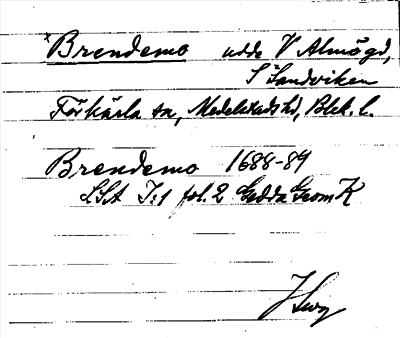 *Brendemo udde V Almögd,
S Sandviken
Förkärla sn, Medelstads hd, Blek. l.
Brendemo 1688-89
LSA I:1 fol. 2 Gedda Geom K